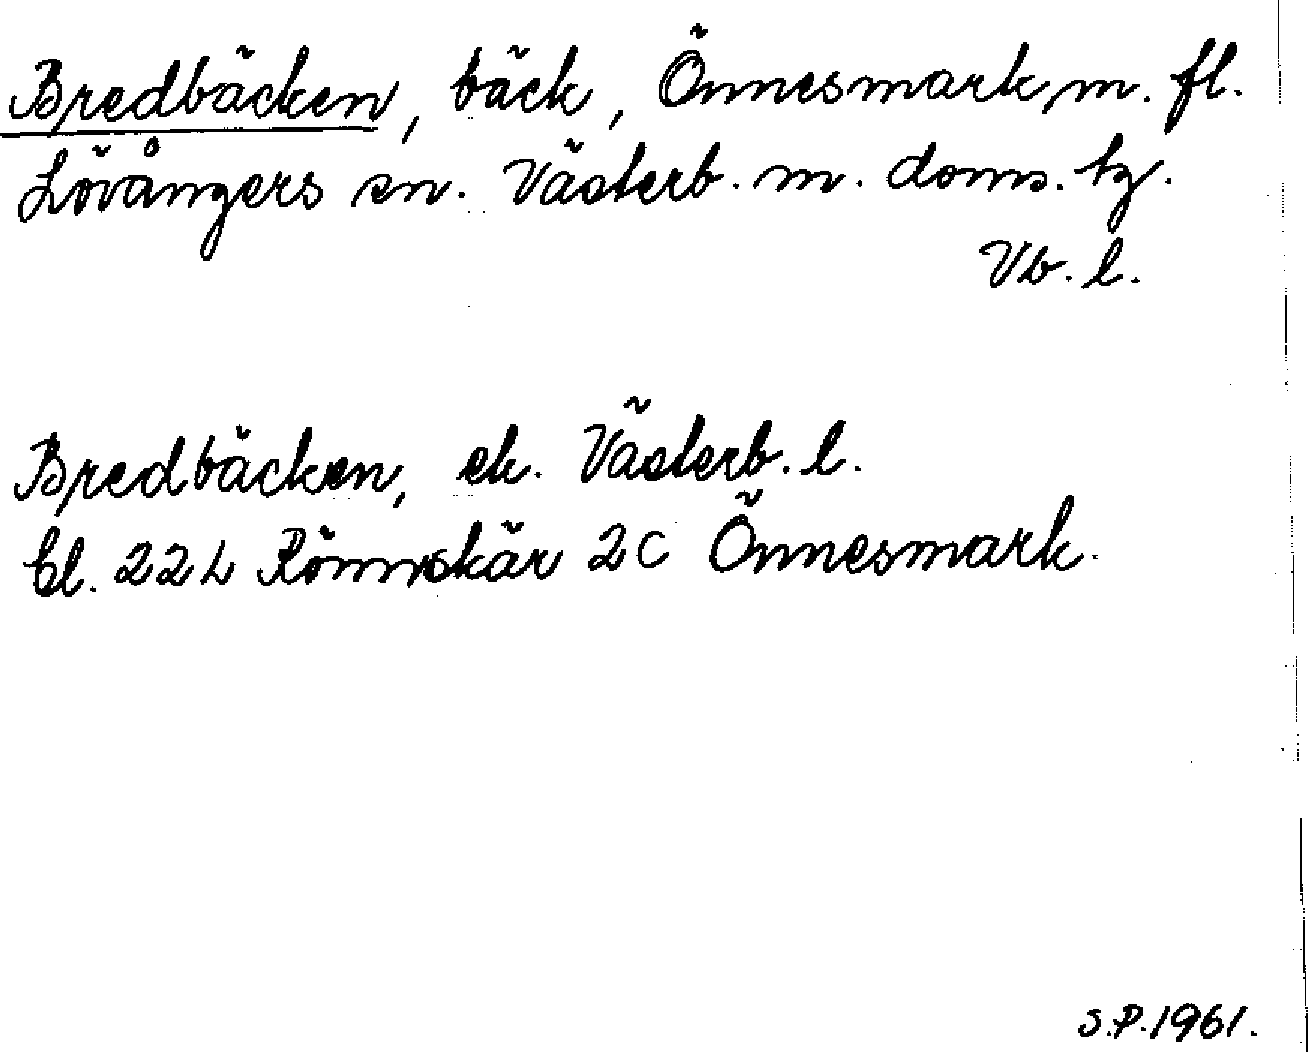 Bredbäcken, bäck, Önnesmark m. fl.
Lövångers sn. Västerb. m. doms. tg.
Vb. l.
Bredbäcken, ek. Västerb. l.
bl. 22L Rönnskär 2c Önnesmark.
S.P.1961.